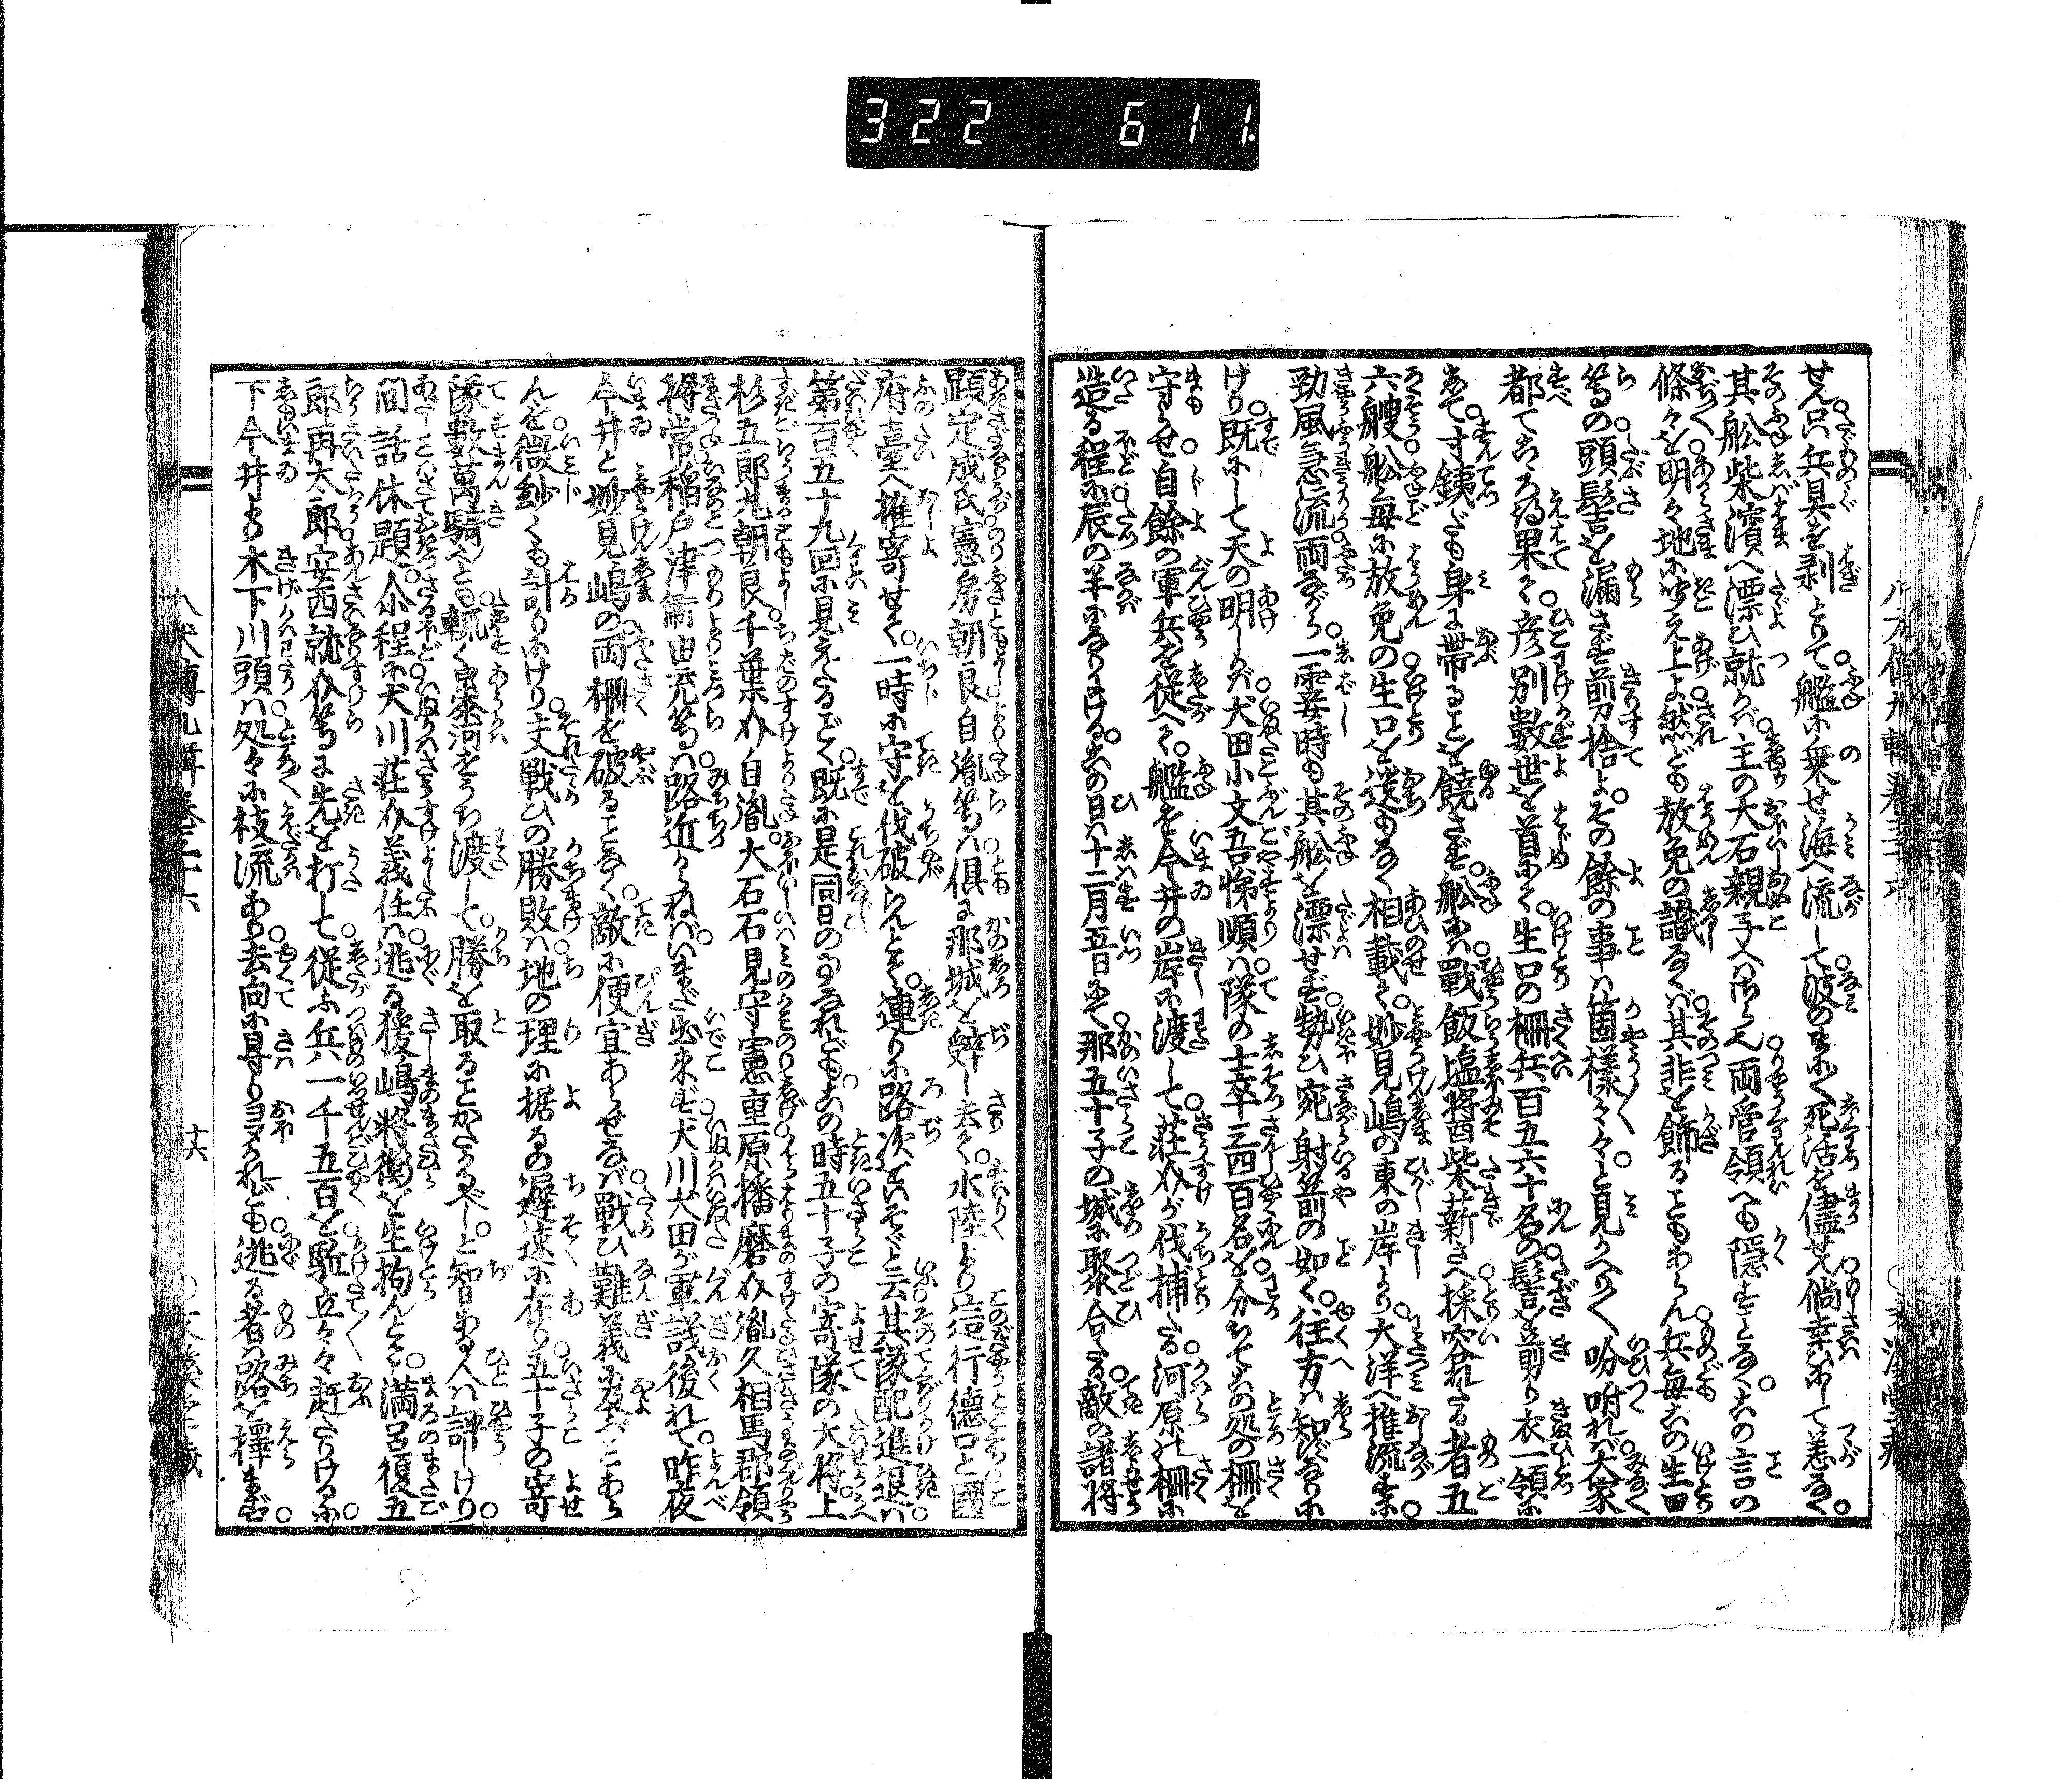 322 611
せん。只兵具を剥とりて。艦に乗せ海へ流して。波のまに〳〵死活を儘せ。倘幸にして恙なく。
其舩柴濱へ漂ひ就かば。主の大石親子へはさら也。両管領へも隠すことなく。この言の
條々を明々地に吿え上よ。然ども放免の識なくば。其非を飾ることもあらん。兵毎この生口
等の頭髻を漏さず剪捨よ。その餘の事は箇様々々と。見かへりつゝ吩咐れば。大家
都てこゝろ得果て。彦別數世を首にて。生口の柵兵百五六十名の。髻を剪り衣一領に
して。寸鉄だも身に帯ることを饒さず。舩には戰飯塩噌柴薪さへ採容れたる者五
六艘。舩毎に放免の生口を送もなく相載て。妙見嶋の東の岸より。大洋へ推流すに。
勁風急流両ながら。一霎時も其舩を漂せず。勢ひ宛射箭の如く。往方は知ずなりに
けり。既にして天の明しかば。犬田小文吾悌順は。隊の士卒三四百名を分ちて。この処の柵を
守らせ。自餘の軍兵を従へて。艦を今井の岸に渡して。荘介が伐捕たる。河原の柵に
造る程に。辰の半になりにける。この日は十二月五日にて。那五十子の城に聚合たる。敵の諸将
顕定成氏憲房朝良自胤等は。倶に那城を辭し去て。水陸より這行徳口と國
府臺へ推寄せて。一時に守を伐破らんとて。連りに路次をいそぐと云。其隊配進退は。
第百五十九回に見えたるごとく。既に是同日の事なれども。この時五十子の寄隊の大将上
杉五郎丸朝良。千葉介自胤。大石石見守憲重原播磨介胤久相馬郡領
将常稲戸津衞由充等は。路近からねばいまだ出来ず。犬川犬田が軍議後れて。昨夜
今井と妙見嶋の両柵を破ることなく。敵に便宜あらせなば。戰ひ難義に及ぶことあら
んを。微妙くも計りにけり。夫戰ひの勝敗は。地の理に据るの遅速に在り。五十子の寄
隊數萬騎なりとも。輒く暴河をうち渡して。勝を取ることかたかるべしと。智ある人は評しけり。
間話休題。尒程に犬川荘介義任は。逃る猨嶋将衡を生拘んとて。満呂復五
郎再太郎。安西就介等に先を打して。従ふ兵一千五百を。駈立々々赶たりけるに。
下今井より木下川頭は。処々に枝流あり。去向に尋り当りかれども。逃る者は路を擇まず。
八犬傳九輯巻三十六
十六